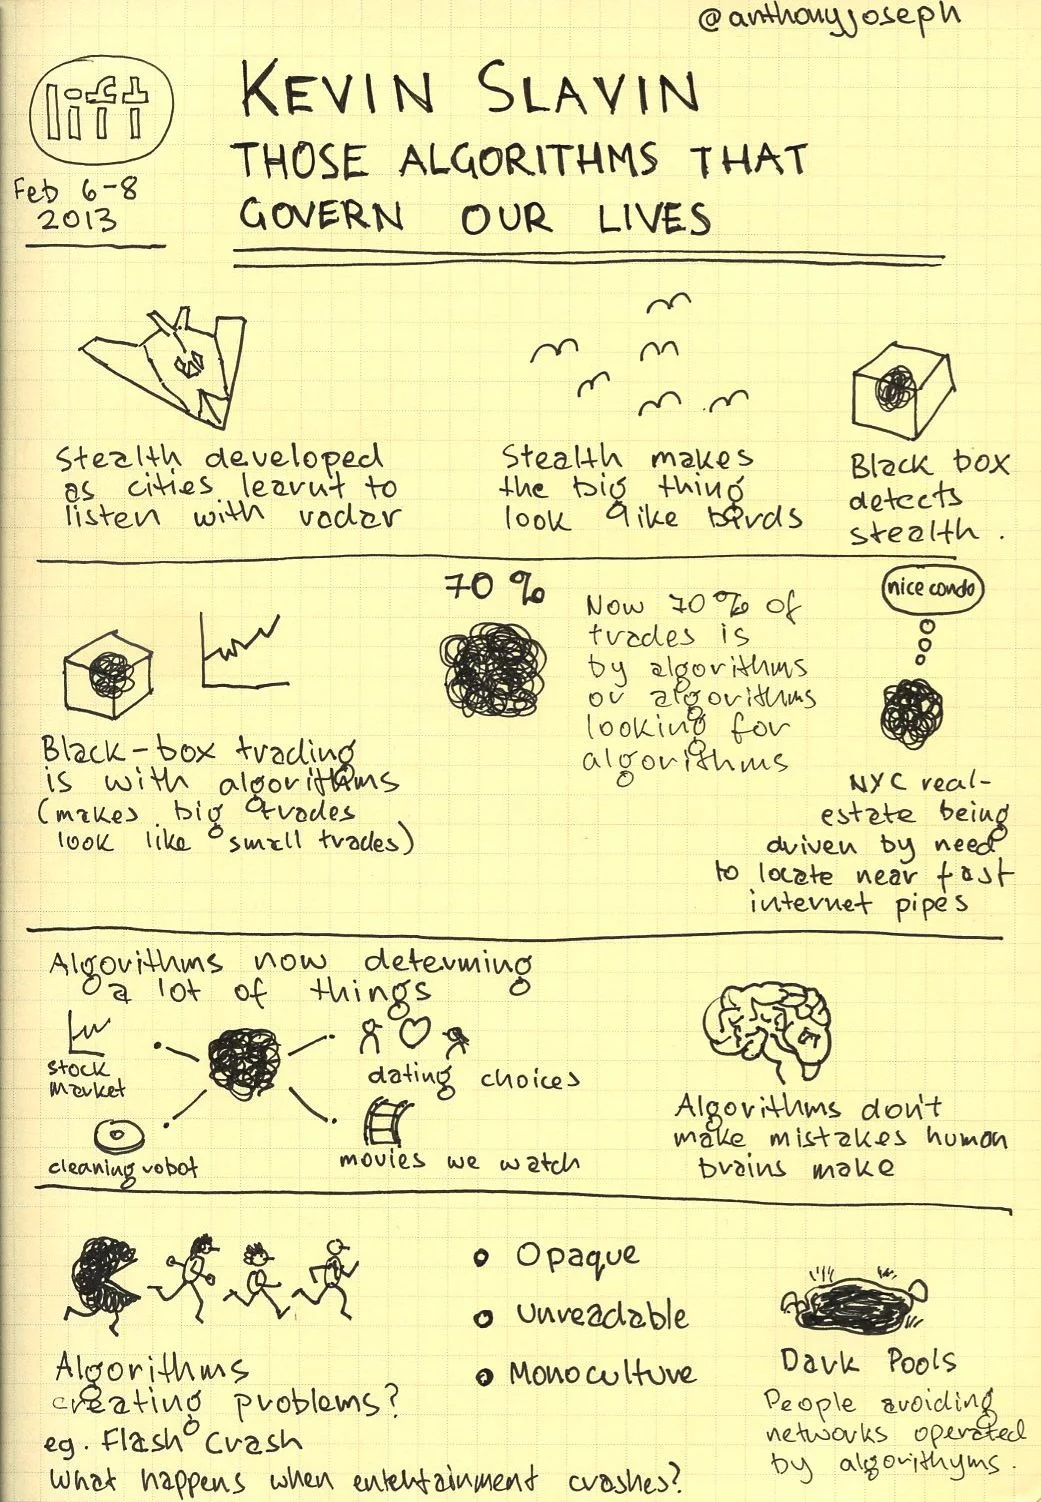 @anthonyjoseph
lift
Feb 6-8
2013
KEVIN SLAVIN
THOSE ALGORITHMS THAT
GOVERN OUR LIVES
Stealth developed
as cities learnt to
listen with radar
Stealth makes
the big thing
look like birds
Black box
detects
stealth.
Black-box trading
is with algorithms
(makes big trades
look like small trades)
70%
Now 70% of
trades is
by algorithms
or algorithms
looking for
algorithms
nice condo
NYC real-
estate being
driven by need
to locate near fast
internet pipes
Algorithms now determing
a lot of things
stock
market
dating choices
cleaning robot
movies we watch
Algorithms don't
make mistakes human
brains make
Algorithms
creating problems?
eg. Flash Crash
What happens when entertainment crashes?
Opaque
Unreadable
Monoculture
Dark Pools
People avoiding
networks operated
by algorithyms.